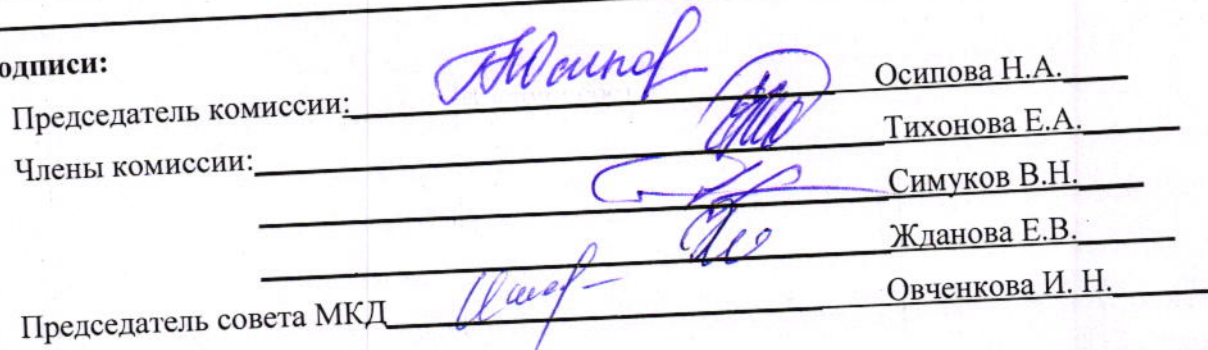 одписи:
Председатель комиссии: Осипова Н.А.
Члены комиссии: Тихонова Е.А.
Симуков В.Н.
Жданова Е.В.
Председатель совета МКД Овченкова И. Н.